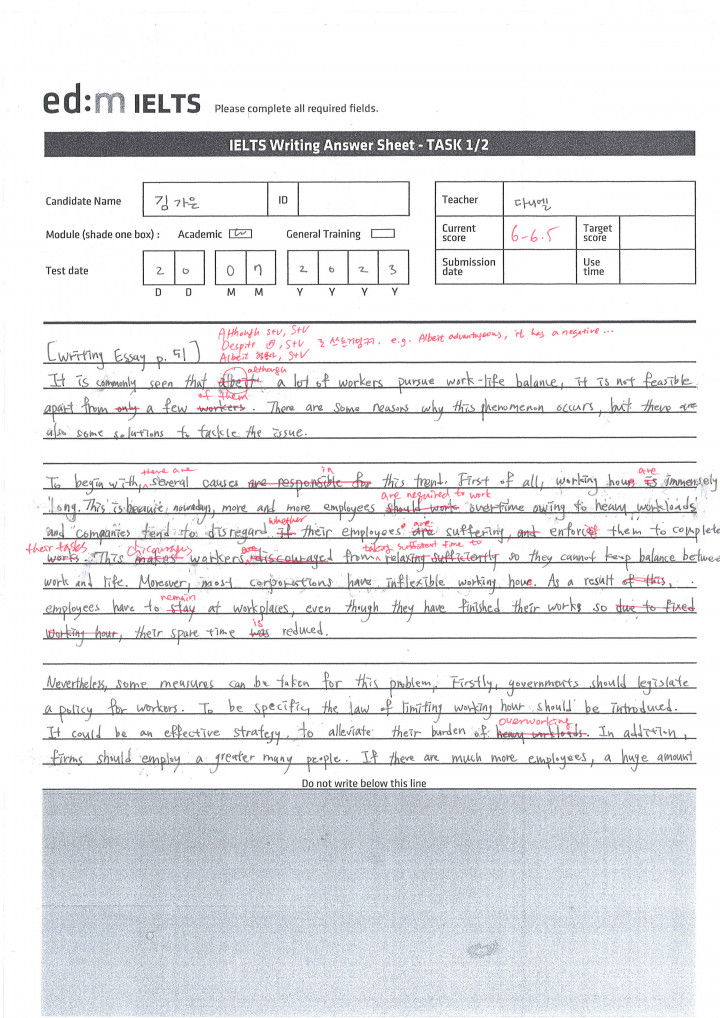 ed:m IELTS Please complete all required fields.
IELTS Writing Answer Sheet - TASK 1/2
Candidate Name 김가은 ID
Teacher 다니엘
Module (shade one box) : Academic General Training
Current score 6-6.5 Target score
Test date 2 0 0 7 2 0 2 3
Submission date Use time
D D M M Y Y Y Y
Although S+V, S+V
Despite S+V e.g. Albeit advantageous, it has a negative ...
Albeit S+V
[Writing Essay p.51]
although
It is commonly seen that albeit a lot of workers pursue work-life balance, it is not feasible
of them
apart from only a few workers. There are some reasons why this phenomenon occurs, but there are
also some solutions to tackle the issue.
there are in are
To begin with, several causes are responsible for this trend. First of all, working hours is immensely
are required to work
long. This is because, nowadays, more and more employees should work overtime owing to heavy workloads
whether are
and companies tend to disregard if their employees are suffering, and enforcing them to complete
their tasks discourages taking sufficient time to
works. This makes workers are discouraged from relaxing sufficiently so they cannot keep balance between
work and life. Moreover, most corporations have inflexible working hour. As a result of this,
remain
employees have to stay at workplaces, even though they have finished their works so due to fixed
is
working hour, their spare time was reduced.
Nevertheless, some measures can be taken for this problem, Firstly, governments should legislate
a policy for workers. To be specific, the law of limiting working hour should be introduced.
overworking
It could be an effective strategy to alleviate their burden of heavy workloads. In addition,
firms should employ a greater many people. If there are much more employees, a huge amount
Do not write below this line